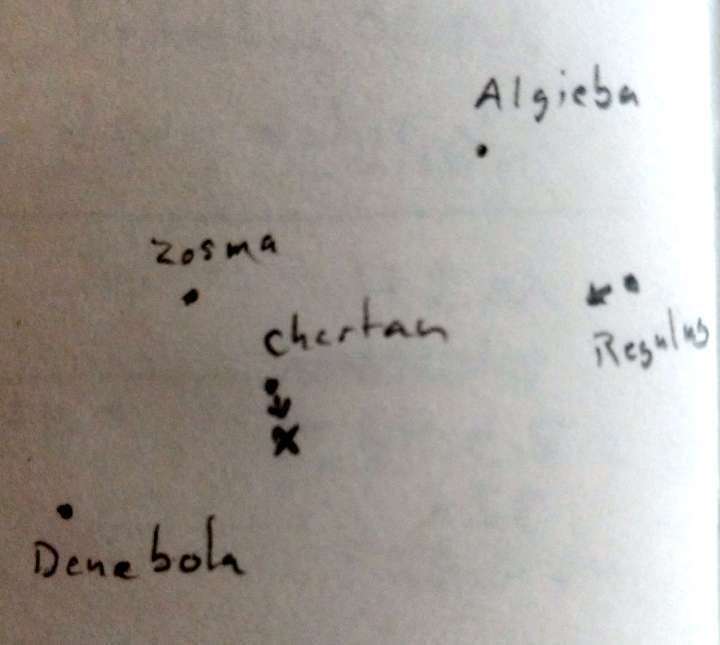 Algieba
Zosma
Chertan
Regulus
X
Denebola